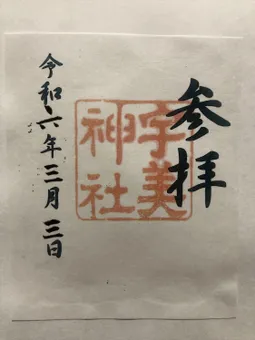 参拝
宇美
神社
令和六年三月三日